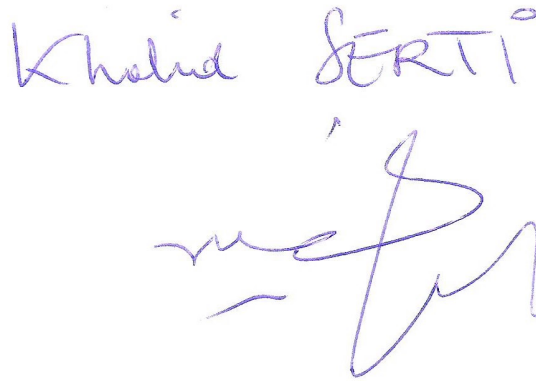 Khalid SERTI